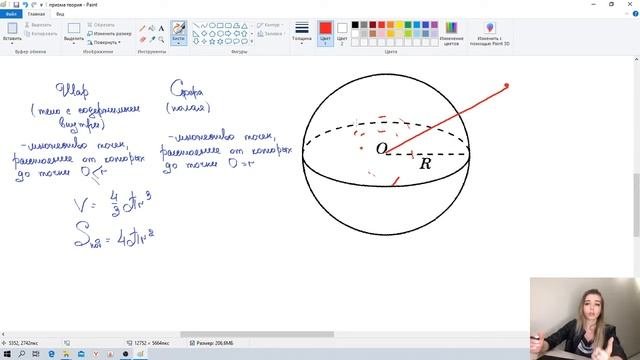 призма теория - Paint
Файл
Главная
Вид
Вставить
Буфер обмена
Выделить
Изображение
Кисти
Инструменты
Фигуры
Контур
Заливка
Толщина
Цвет 1
Цвет 2
Цвета
Изменение цветов
Изменить с помощью Paint 3D
Шар
(тело с содержимым
внутри)
- множество точек,
расстояние от которых
до точки O ≤ r
V = 4/3 πr³
Sпов = 4πr²
Сфера
(полая)
- множество точек,
расстояние от которых
до точки O = r
O
R
5352, 2742пкс
12752 × 5664пкс
Размер: 206,6МБ